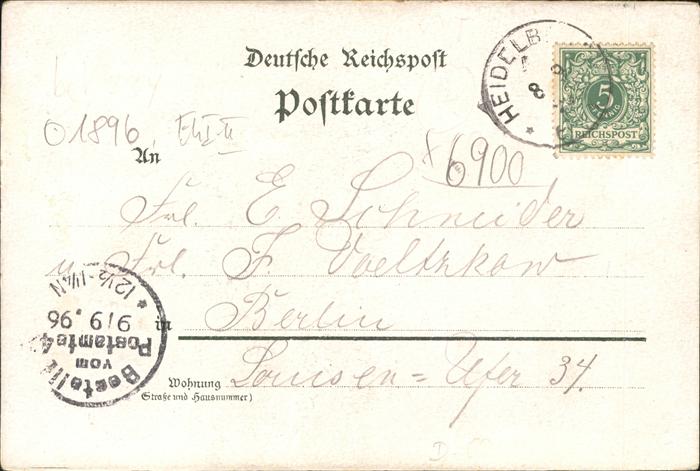 Deutsche Reichspost
Postkarte
HEIDELB
8
5
REICHSPOST
O 1896
6900
An
Frl. E Schneider
u Frl. F. Voeltzkow
in Berlin
Wohnung Louisen=Ufer 34.
(Straße und Hausnummer)
Bestellt
vom
Postamte 4
9/9.96
* 12½-1¼N
D